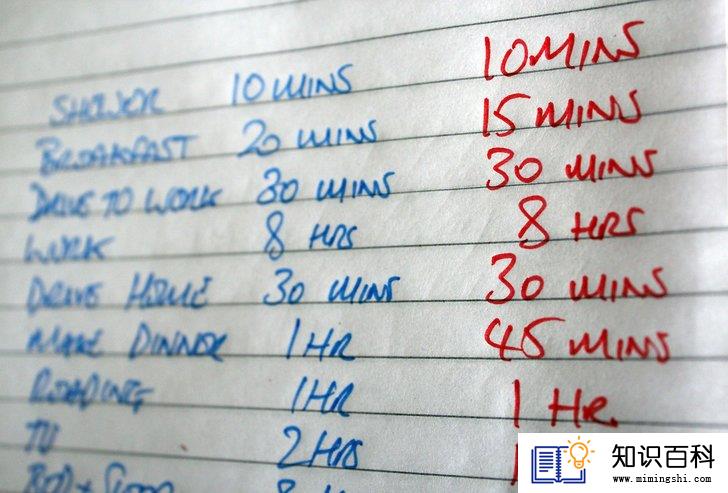 SHOWER 10 MINS 10 MINS
BREAKFAST 20 MINS 15 MINS
DRIVE TO WORK 30 MINS 30 MINS
WORK 8 HRS 8 HRS
DRIVE HOME 30 MINS 30 MINS
MAKE DINNER 1 HR 45 MINS
READING 1 HR 1 HR.
TV 2 HRS 1
知识百科
www.mimingshi.com